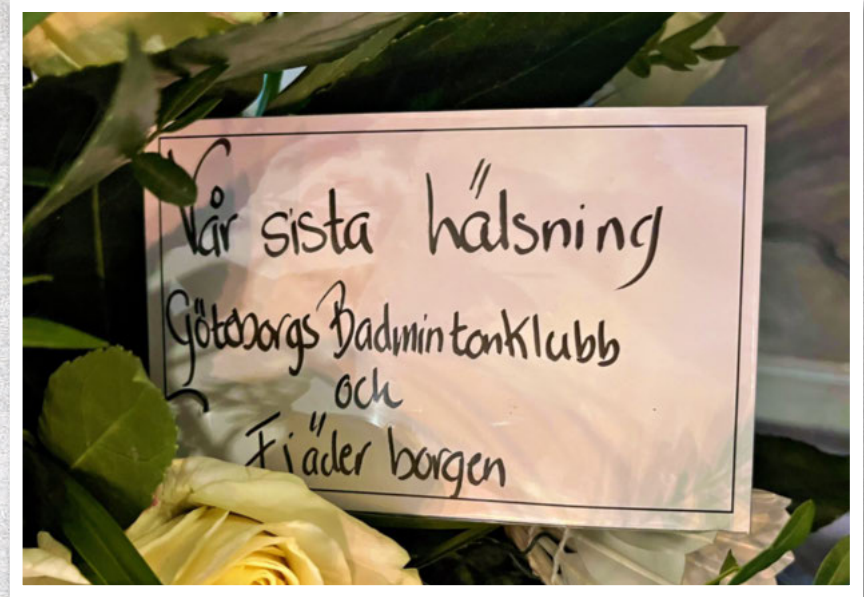 Vår sista hälsning
Göteborgs Badmintonklubb
och
Fjäder borgen